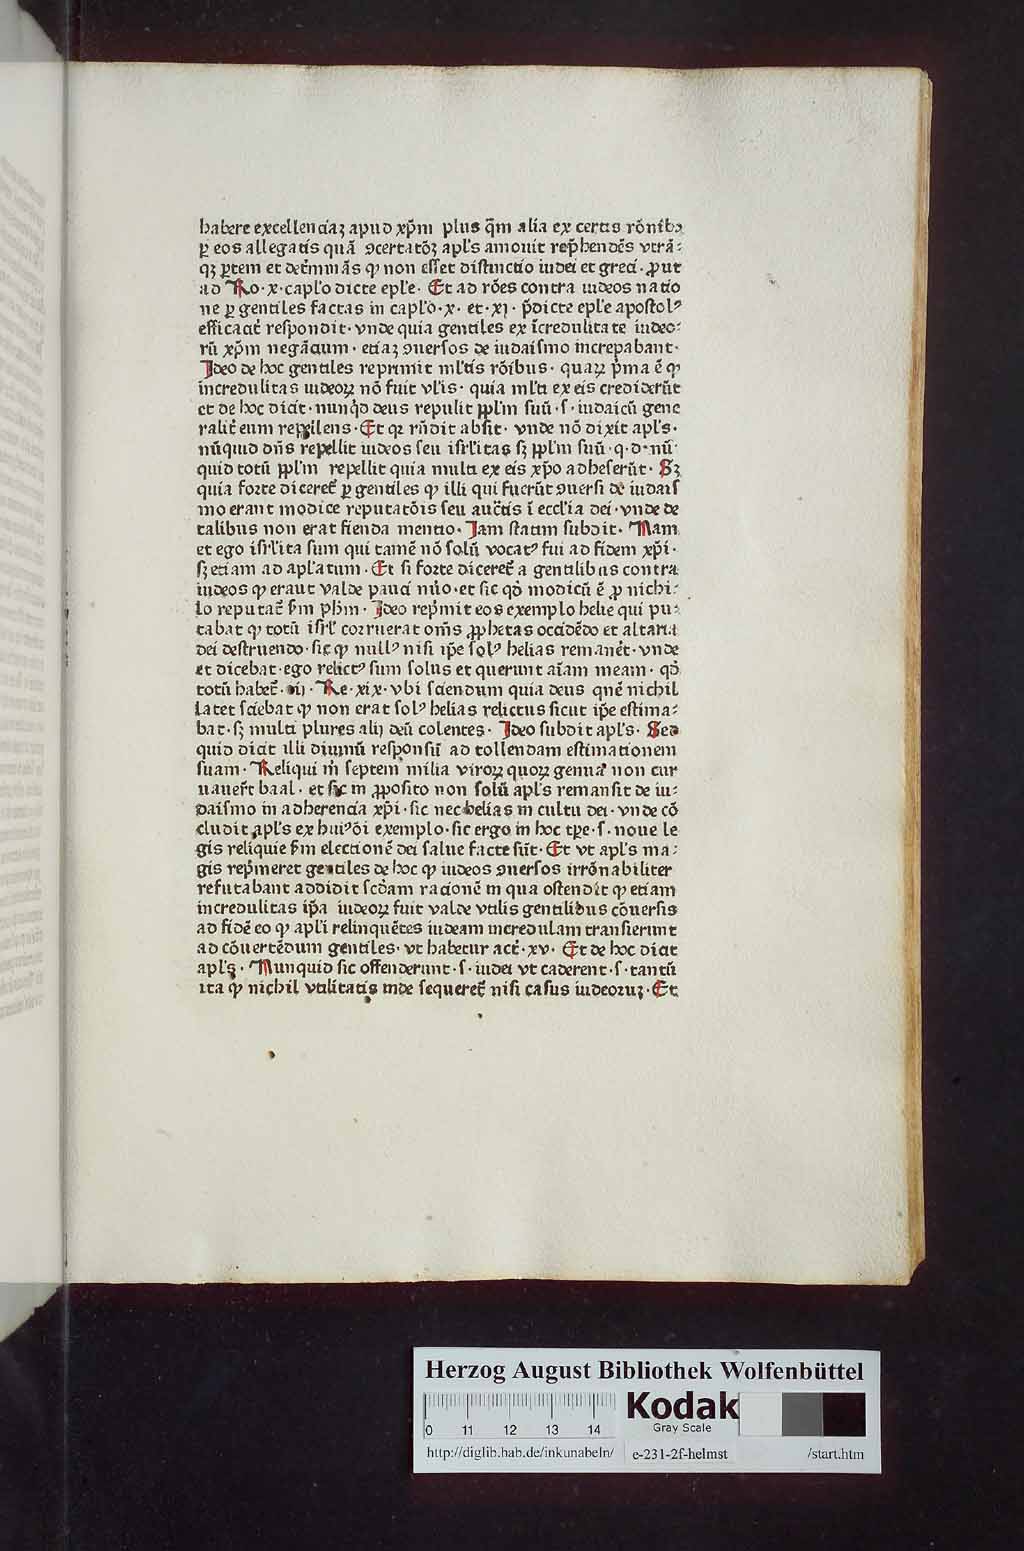 habere excellenciaꝫ apud xp̄m plus q̄m alia ex certis rōnibꝫ
ꝑ eos allegatis quā ꝯcertatōꝫ apl's amouit rep̄hendēs vtrā-
qꝫ ꝑtem et det̄minās ꝙ non esset distinctio iudei et greci · ꝓut
ad Ro · x · caplo dicte epl̄e · Et ad rōes contra iudeos natio
ne ꝑ gentiles factas in caplō · x · et · xj · p̄dicte epl̄e apostolꝰ
efficacit̄ respondit · vnde quia gentiles ex īcredulitate iudeo-
rū xp̄m negāciū · etiaꝫ ꝯuersos de iudaismo increpabant ·
Ideo de hoc gentiles reprimit ml'tis rōibus · quaꝝ p̄ma ē ꝙ
incredulitas iudeoꝝ nō fuit vl'is · quia ml'ti ex eis crediderūt
et de hoc dicit · nunq̄d deus repulit ppl'm suū · s · iudaicū gene
ralit̄ eum repellens · Et qꝛ rn̄dit absit · vnde nō dixit apl's ·
nūquid dn̄s repellit iudeos seu isrl'itas sꝫ ppl'm suū · q · d · nū
quid totū ppl'm repellit quia multi ex eis xp̄o adheserūt · Sꝫ
quia forte diceret̄ ꝑ gentiles ꝙ illi qui fuerūt ꝯuersi de iudais
mo erant modice reputatōis seu auct̄is ī eccl'ia dei · vnde de
talibus non erat fienda mentio · Jam statim subdit · Nam
et ego isrl'ita sum qui tamē nō solū vocatꝰ fui ad fidem xp̄i ·
sꝫ etiam ad apl'atum · Et si forte diceret̄ a gentilibus contra
iudeos ꝙ eraut valde pauci nūo · et sic qd̄ modicū ē ꝓ nichi-
lo reputat̄ s̄m ph̄m · Ideo rep̄mit eos exemplo helie qui pu-
tabat ꝙ totū isrl' corruerat om̄s ꝓphetas occidēdo et altaria
dei destruendo · sic ꝙ nullꝰ nisi ip̄e solꝰ helias remanēt · vnde
et dicebat · ego relictꝰ sum solus et querunt aīam meam · qd̄
totū habet̄ · iij · Re · xix · vbi sciendum quia deus quē nichil
latet sciebat ꝙ non erat solꝰ helias relictus sicut ip̄e estima-
bat · sꝫ multi plures alij deū colentes · Ideo subdit apl's · Sed
quid dicit illi diuinū responsū ad tollendam estimationem
suam · Reliqui m̄ septem milia viroꝝ quoꝝ genua non cur
uauer̄t baal · et sic in ꝓposito non solū apl's remansit de iu-
daismo in adherencia xp̄i · sic nec helias in cultu dei · vnde cō
cludit apl's ex huiꝰōi exemplo · sic ergo in hoc tp̄e · s · noue le
gis reliquie s̄m electionē dei salue facte sūt · Et vt apl's ma-
gis rep̄meret gentiles de hoc ꝙ iudeos ꝯuersos irrōnabiliter
refutabant addidit scd̄am racionē in qua ostendit ꝙ etiam
incredulitas ip̄a iudeoꝝ fuit valde vtilis gentilibus cōuersis
ad fidē eo ꝙ apl'i relinquētes iudeam incredulam transierunt
ad cōuertēdum gentiles · vt habetur act̄ · xv · Et de hoc dicit
apl's · Nunquid sic offenderunt · s · iudei vt caderent · s · tantū
ita ꝙ nichil vtilitatis inde sequeret̄ nisi casus iudeoruꝫ · Et
Herzog August Bibliothek Wolfenbüttel
0 11 12 13 14
Kodak
Gray Scale
http://diglib.hab.de/inkunabeln/ e-231-2f-helmst /start.htm